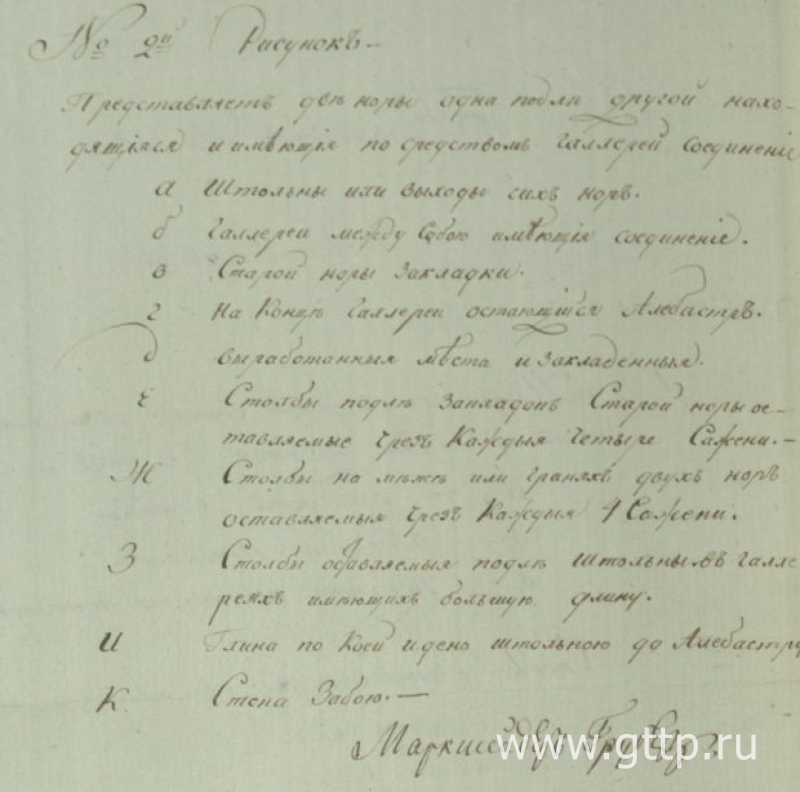 № 2й Рисунокъ —
Представляетъ двѣ норы одна подлѣ другой нахо-
дящіяся и имѣющія по средствомъ Галлерей Соединеніе
а Штольны или выходы сихъ норъ.
б Галлереи между Собою имѣющія соединеніе.
в Старой норы Закладки.
г На Концѣ Галлереи остающійся Алебастръ.
д выработанныя мѣста и Закладенныя.
Е Столбы подлѣ Закладокъ Старой норы ос-
тавляемые Чрезъ Каждыя Четыре Сажени. —
Ж Столбы на межѣ или граняхъ двухъ норъ
оставляемыя Чрезъ Каждыя 4 Сажени.
З Столбы оставляемыя подлѣ Штольны въ Галле
реяхъ имѣющихъ большую длину.
И Глина по Коей идено штольною до Алебастра
К. Стена Забою. —
Маркшейдеръ
www.gttp.ru